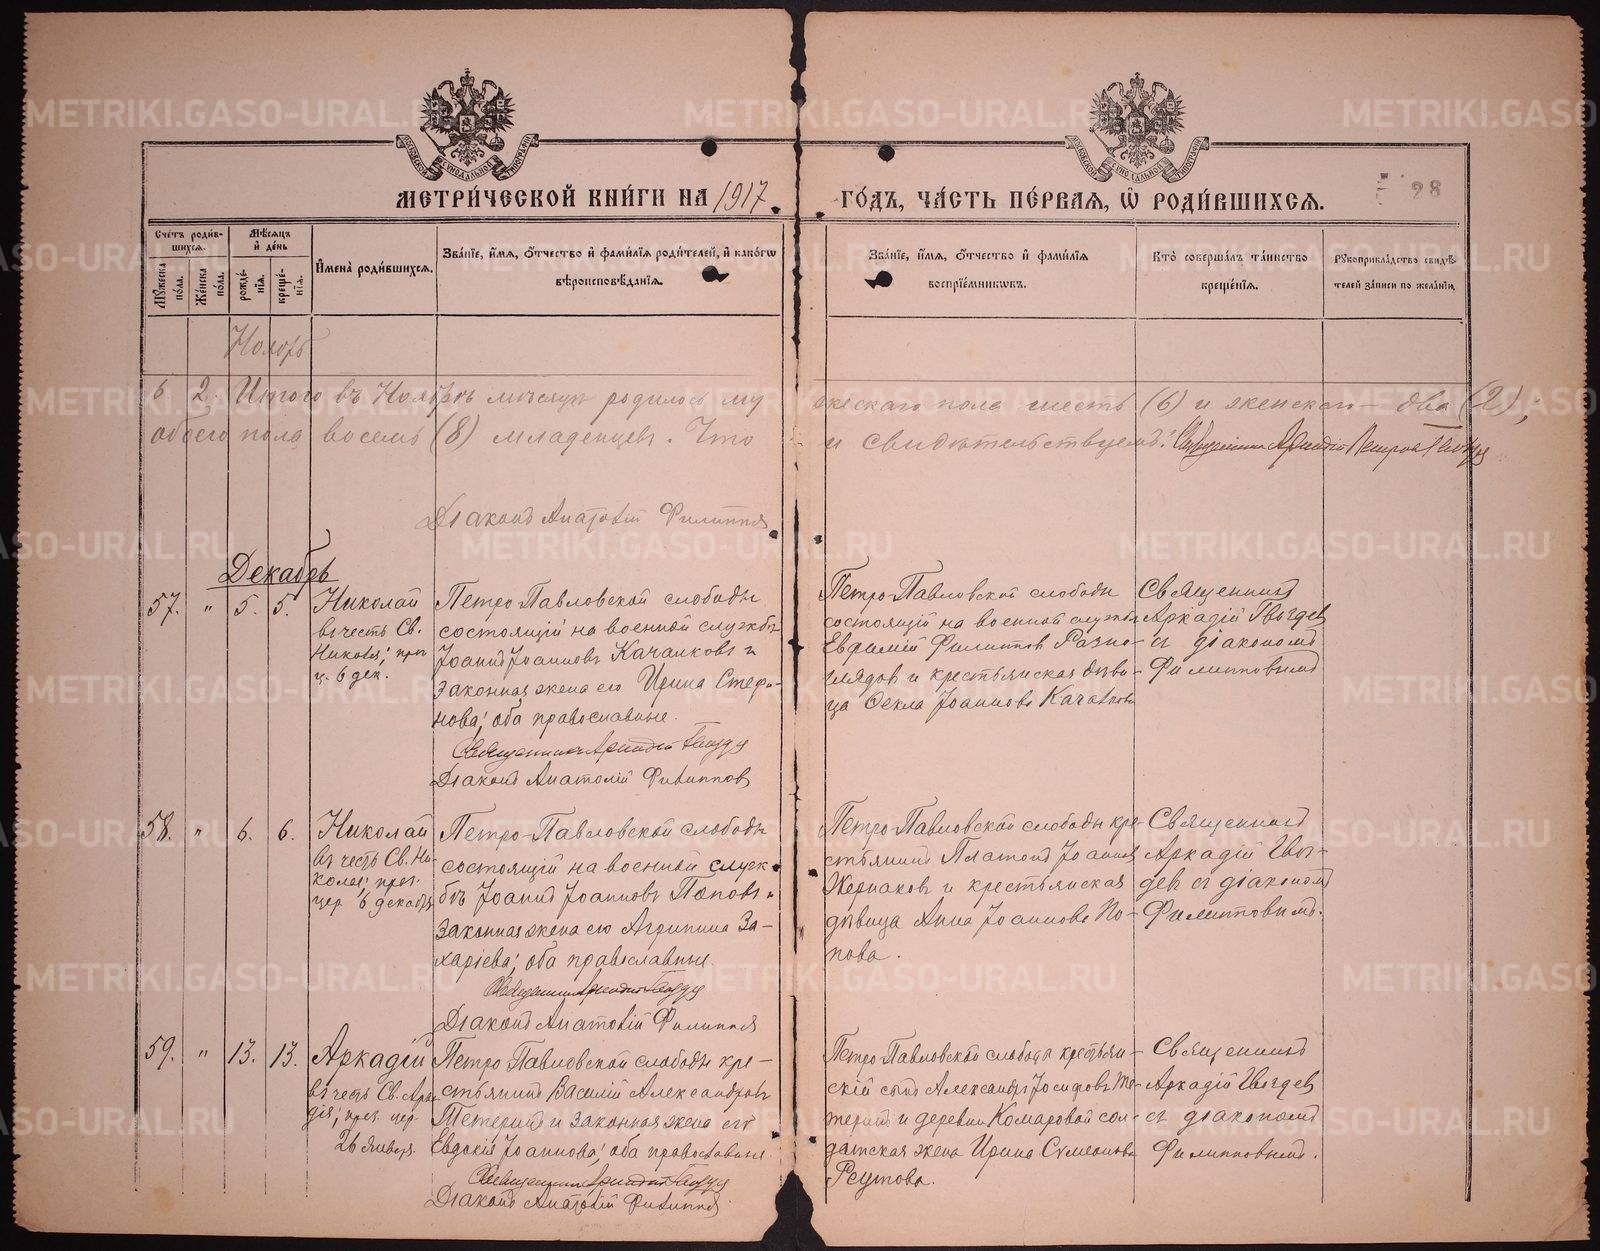 МЕТРИЧЕСКОЙ КНИГИ НА 1917
ГОДЪ, ЧАСТЬ ПЕРВАЯ, Ѿ РОДИВШИХСЯ.
28
Счетъ родив-
шихся.
Мѣсяцъ
и день
Мужеска
пола.
Женска
пола.
рожде-
нія.
креще-
нія.
Имена родившихся.
Званіе, имя, отчество и фамилія родителей, и какогѡ
вѣроисповѣданія.
Званіе, имя, отчество и фамилія
воспріемниковъ.
Кто совершалъ таинство
крещенія.
Рукоприкладство свидѣ-
телей записи по желанію.
Ноябрь
6 2. Итого въ Ноябрѣ мѣсяцѣ родилось му
жескаго пола шесть (6) и женскаго – два (2),
обоего пола восемь (8) младенцевъ. Что
и свидѣтельствуемъ:
Діаконъ Анатолій Филиппов
Декабрь
57. " 5. 5.
Николай
въ честь Св.
Николая; праз
ц. 6 дек.
Петро-Павловской слободы
состоящій на военной службѣ
Іоаннъ Іоанновъ Качалковъ и
законная жена его Ирина Стефа-
нова; оба православные.
Священникъ Аркадій Гвоздев
Діаконъ Анатолій Филиппов
Петро-Павловской слободы
состоящій на военной службѣ
Евфимій Филиппов Разно-
глядов и крестьянская дѣви-
ца Фекла Іоаннова Качалкова
Священникъ
Аркадій Гвоздев
съ діакономъ
Филипповымъ
58. " 6. 6.
Николай
въ честь Св. Ни-
колая; праз.
цер. 6 декабря
Петро-Павловской слободы
состоящій на военной служ-
бѣ Іоаннъ Іоанновъ Поповъ и
законная жена его Агрипина За-
харіева; оба православные.
Священникъ Аркадій Гвоздев
Діаконъ Анатолій Филиппов
Петро-Павловской слободы кре-
стьянинъ Платонъ Іоаннов
Жернаковъ и крестьянская
дѣвица Анна Іоаннова По-
пова.
Священникъ
Аркадій Гвоз-
девъ съ діакономъ
Филипповымъ.
59. " 13. 13.
Аркадій
въ честь Св. Арка
дія; праз. цер
26 января.
Петро-Павловской слободы кре-
стьянинъ Василій Александровъ
Тетеринъ и законная жена его
Евдокія Іоаннова; оба православные.
Священникъ Аркадій Гвоздев
Діаконъ Анатолій Филиппов
Петро-Павловской слободы крестьян-
скій сынъ Александръ Іосифовъ Те-
теринъ и деревни Комаровой сол-
датская жена Ирина Сумеонова
Реутова.
Священникъ
Аркадій Гвоздев
съ діакономъ
Филипповымъ.
METRIKI.GASO-URAL.RU